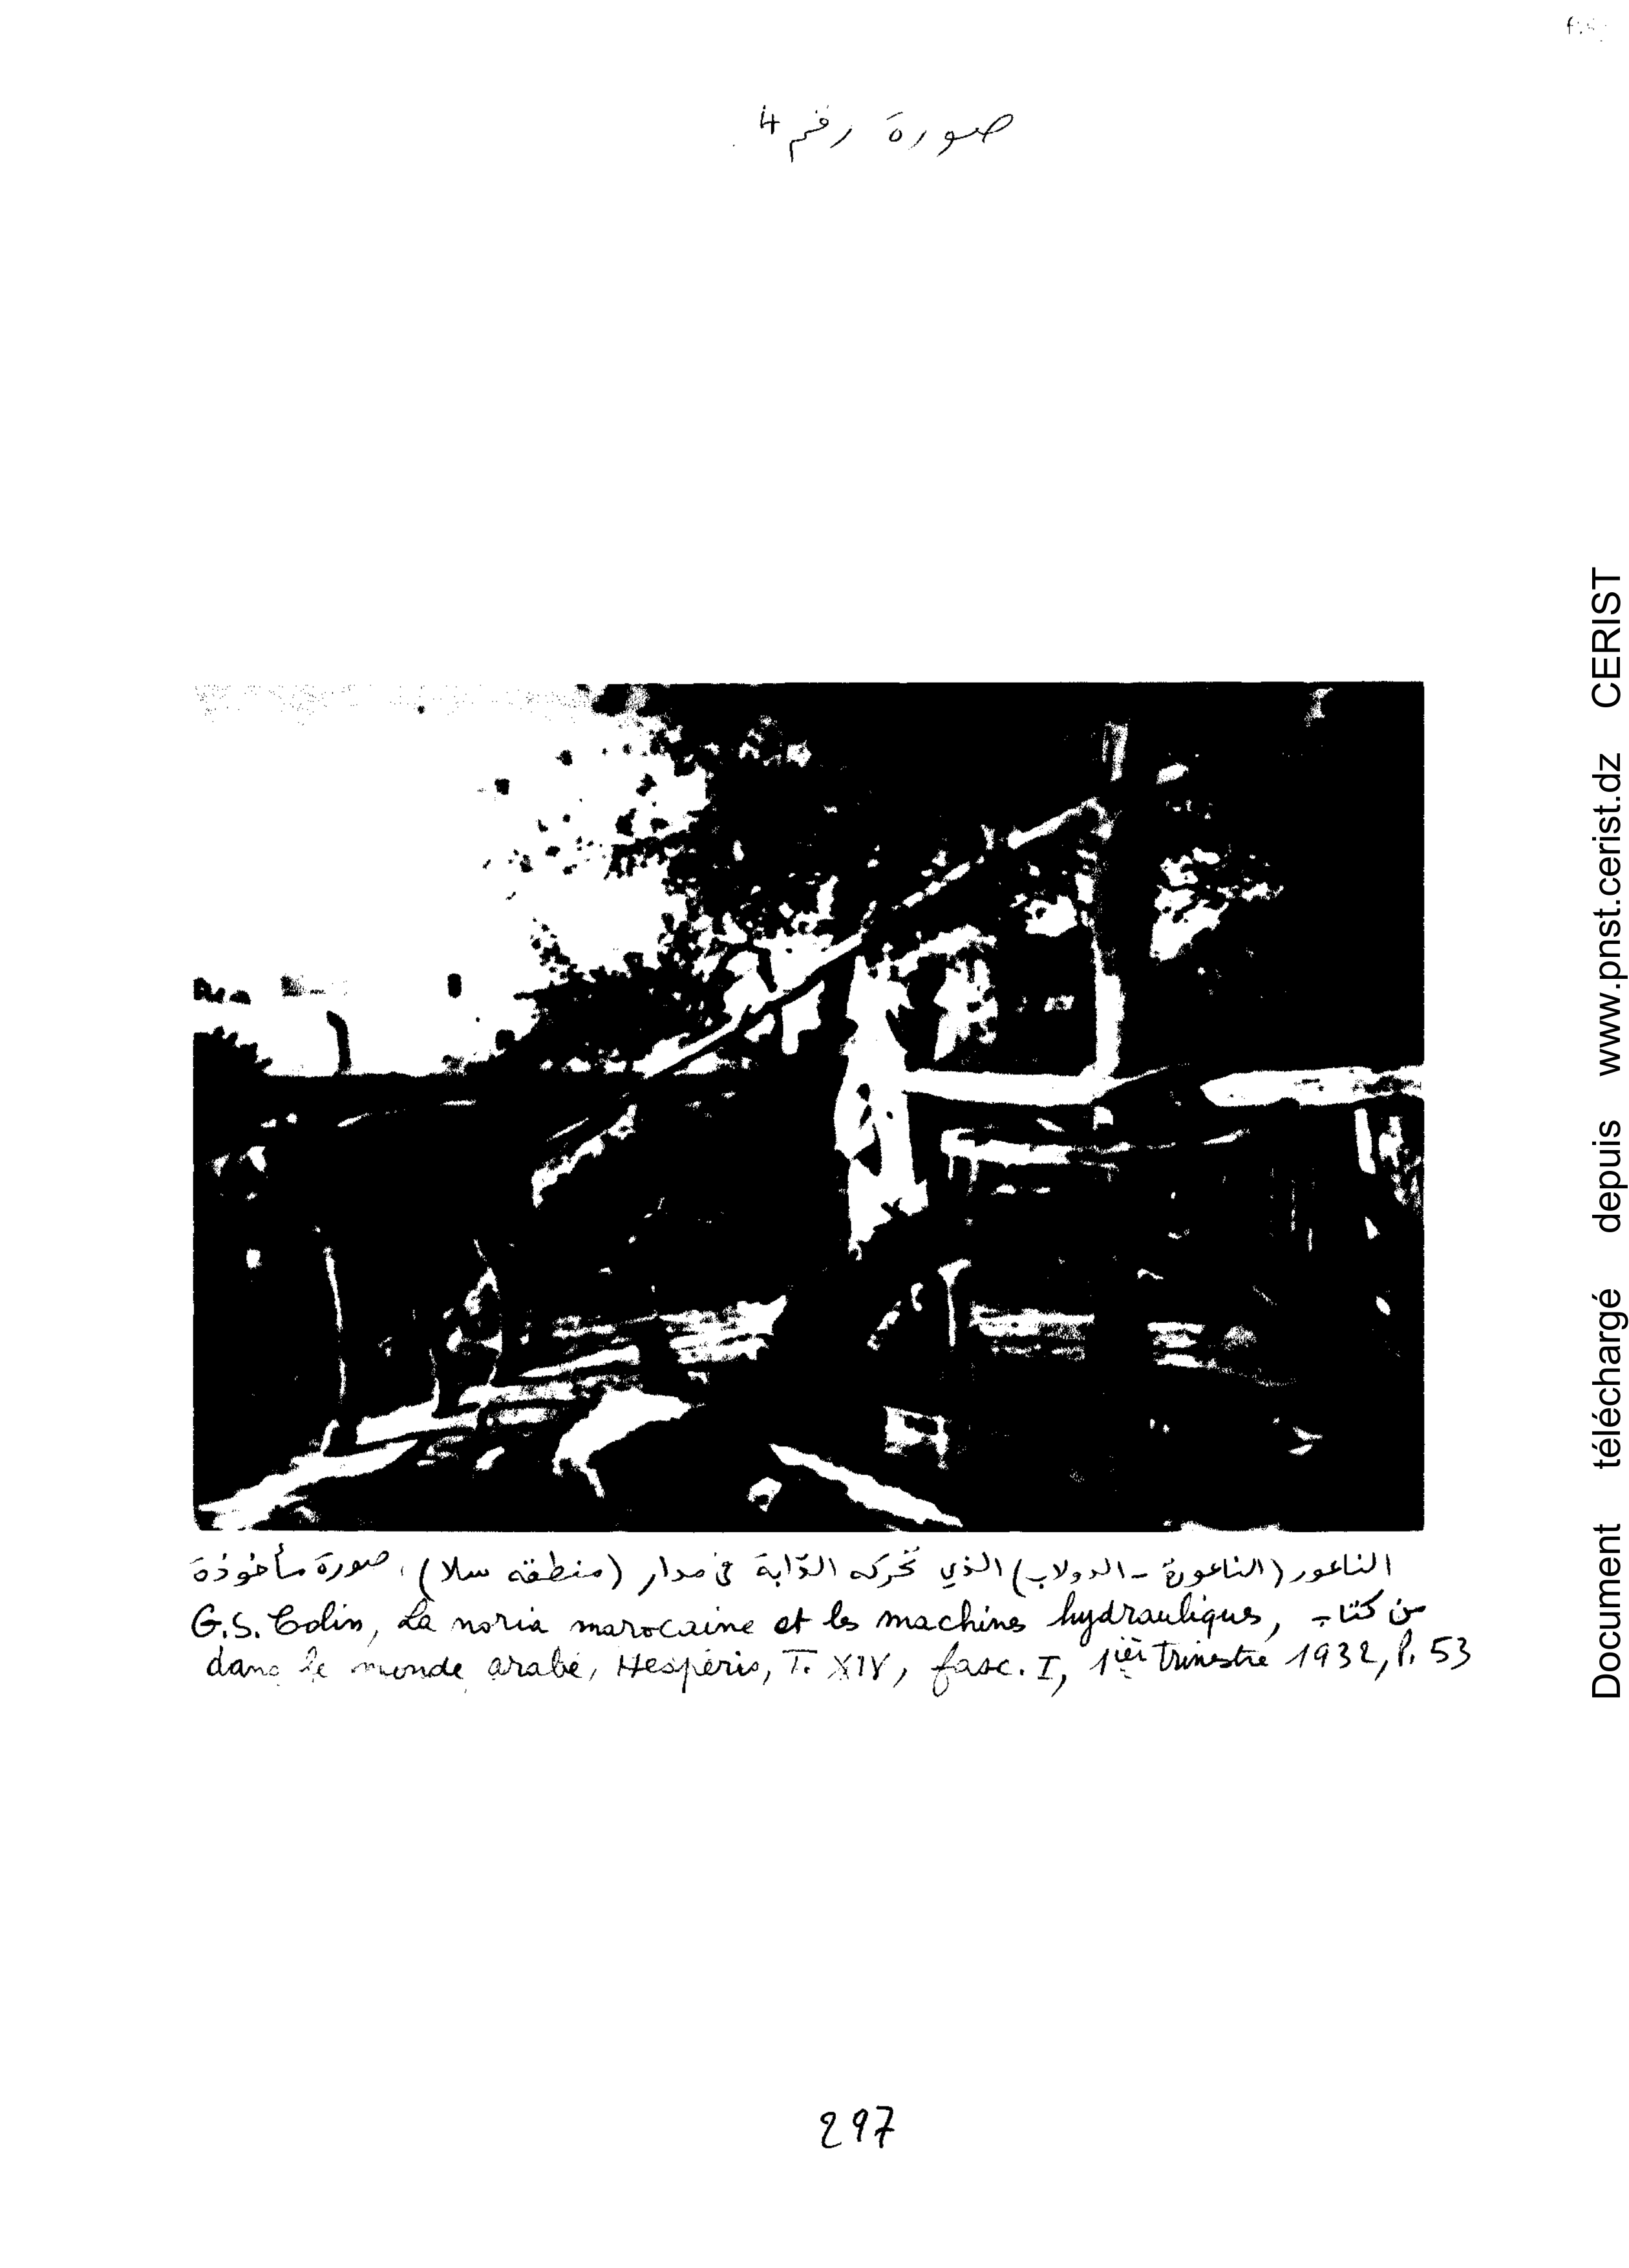 صورة رقم 4
الناعور (الناعورة - الدولاب) الذي تحركه الدّابة في مدار (منطقة سلا)، صورة مأخوذة
من كتاب G.S. Colin, La noria marocaine et les machines hydrauliques,
dans le monde arabe, Hespéris, T. XIV, fasc. I, 1ier trimestre 1932, P. 53
297
Document téléchargé depuis www.pnst.cerist.dz CERIST